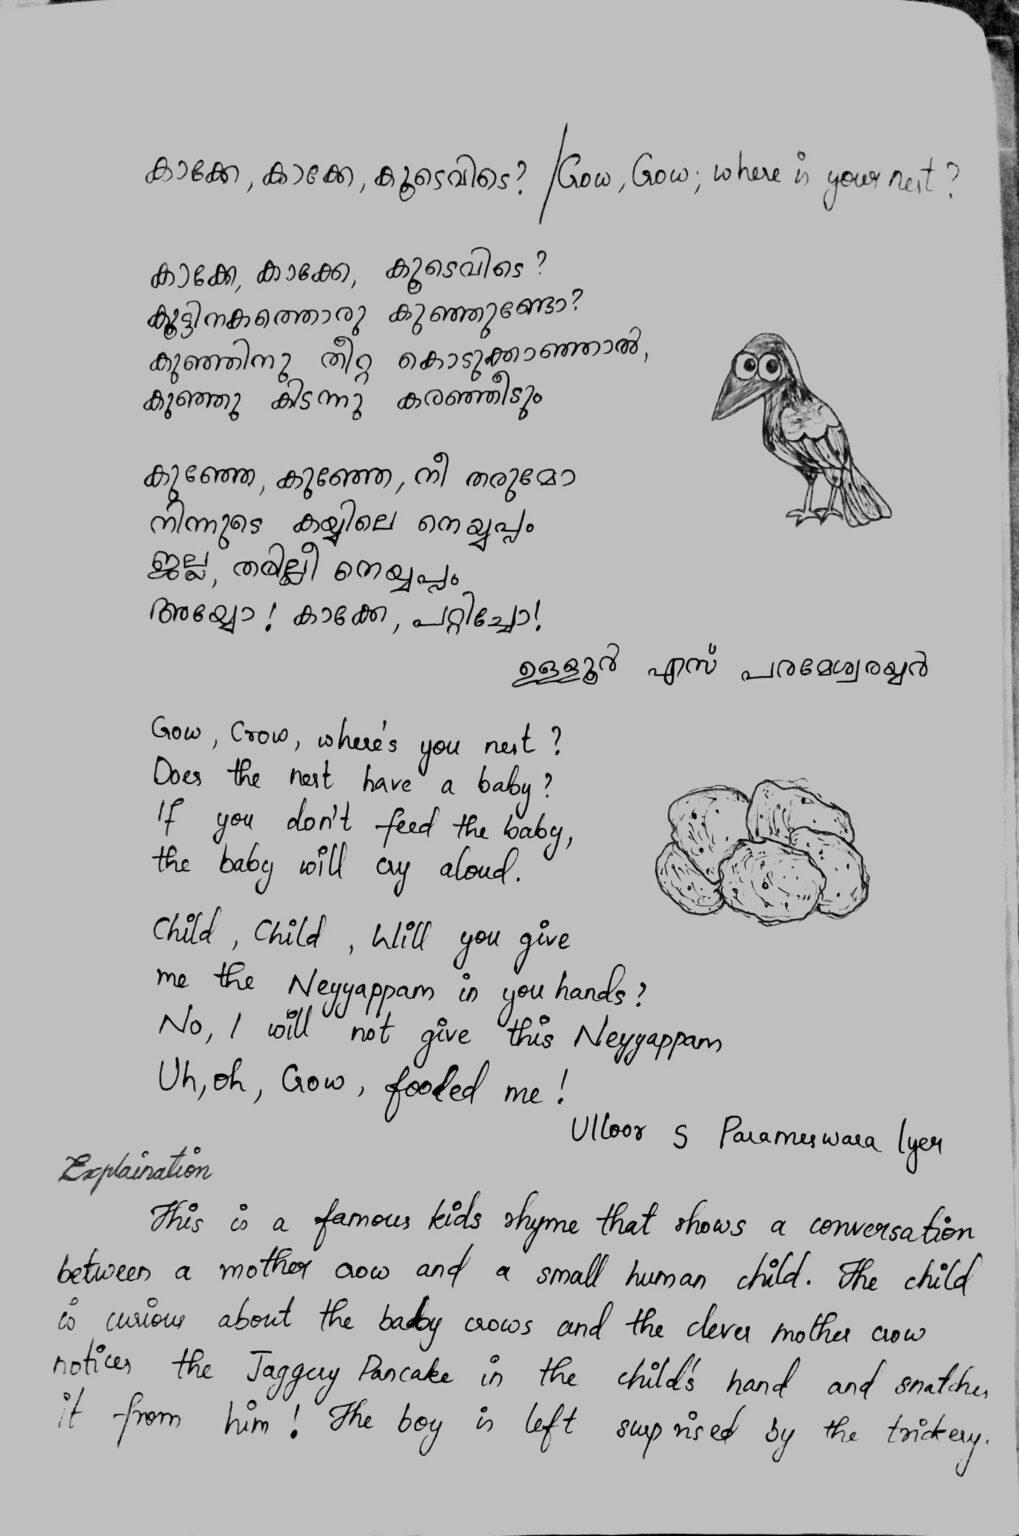 കാക്കേ, കാക്കേ, കൂടെവിടെ? / Crow, Crow; where is your nest?
കാക്കേ, കാക്കേ, കൂടെവിടെ?
കൂട്ടിനകത്തൊരു കുഞ്ഞുണ്ടോ?
കുഞ്ഞിനു തീറ്റ കൊടുക്കാഞ്ഞാൽ,
കുഞ്ഞു കിടന്നു കരഞ്ഞീടും
കുഞ്ഞേ, കുഞ്ഞേ, നീ തരുമോ
നിന്നുടെ കയ്യിലെ നെയ്യപ്പം
ഇല്ല, തരില്ലീ നെയ്യപ്പം
അയ്യോ! കാക്കേ, പറ്റിച്ചോ!
ഉള്ളൂർ എസ് പരമേശ്വരയ്യർ
Crow, Crow, where's you nest?
Does the nest have a baby?
If you don't feed the baby,
the baby will cry aloud.
Child, Child, Will you give
me the Neyyappam in you hands?
No, I will not give this Neyyappam
Uh, oh, Crow, fooled me!
Ulloor S Parameswara Iyer
Explaination
This is a famous kids rhyme that shows a conversation
between a mother crow and a small human child. The child
is curious about the baby crows and the clever mother crow
notices the Jaggery Pancake in the child's hand and snatches
it from him! The boy is left surprised by the trickery.